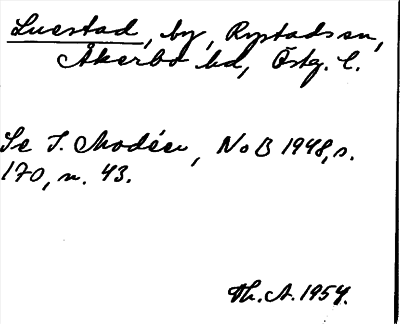 Luestad, by, Rystads sn,
Åkerbo hd, Östg. l.
Se I. Modéer, NoB 1948, s.
170, n. 43.
Th. A. 1954.